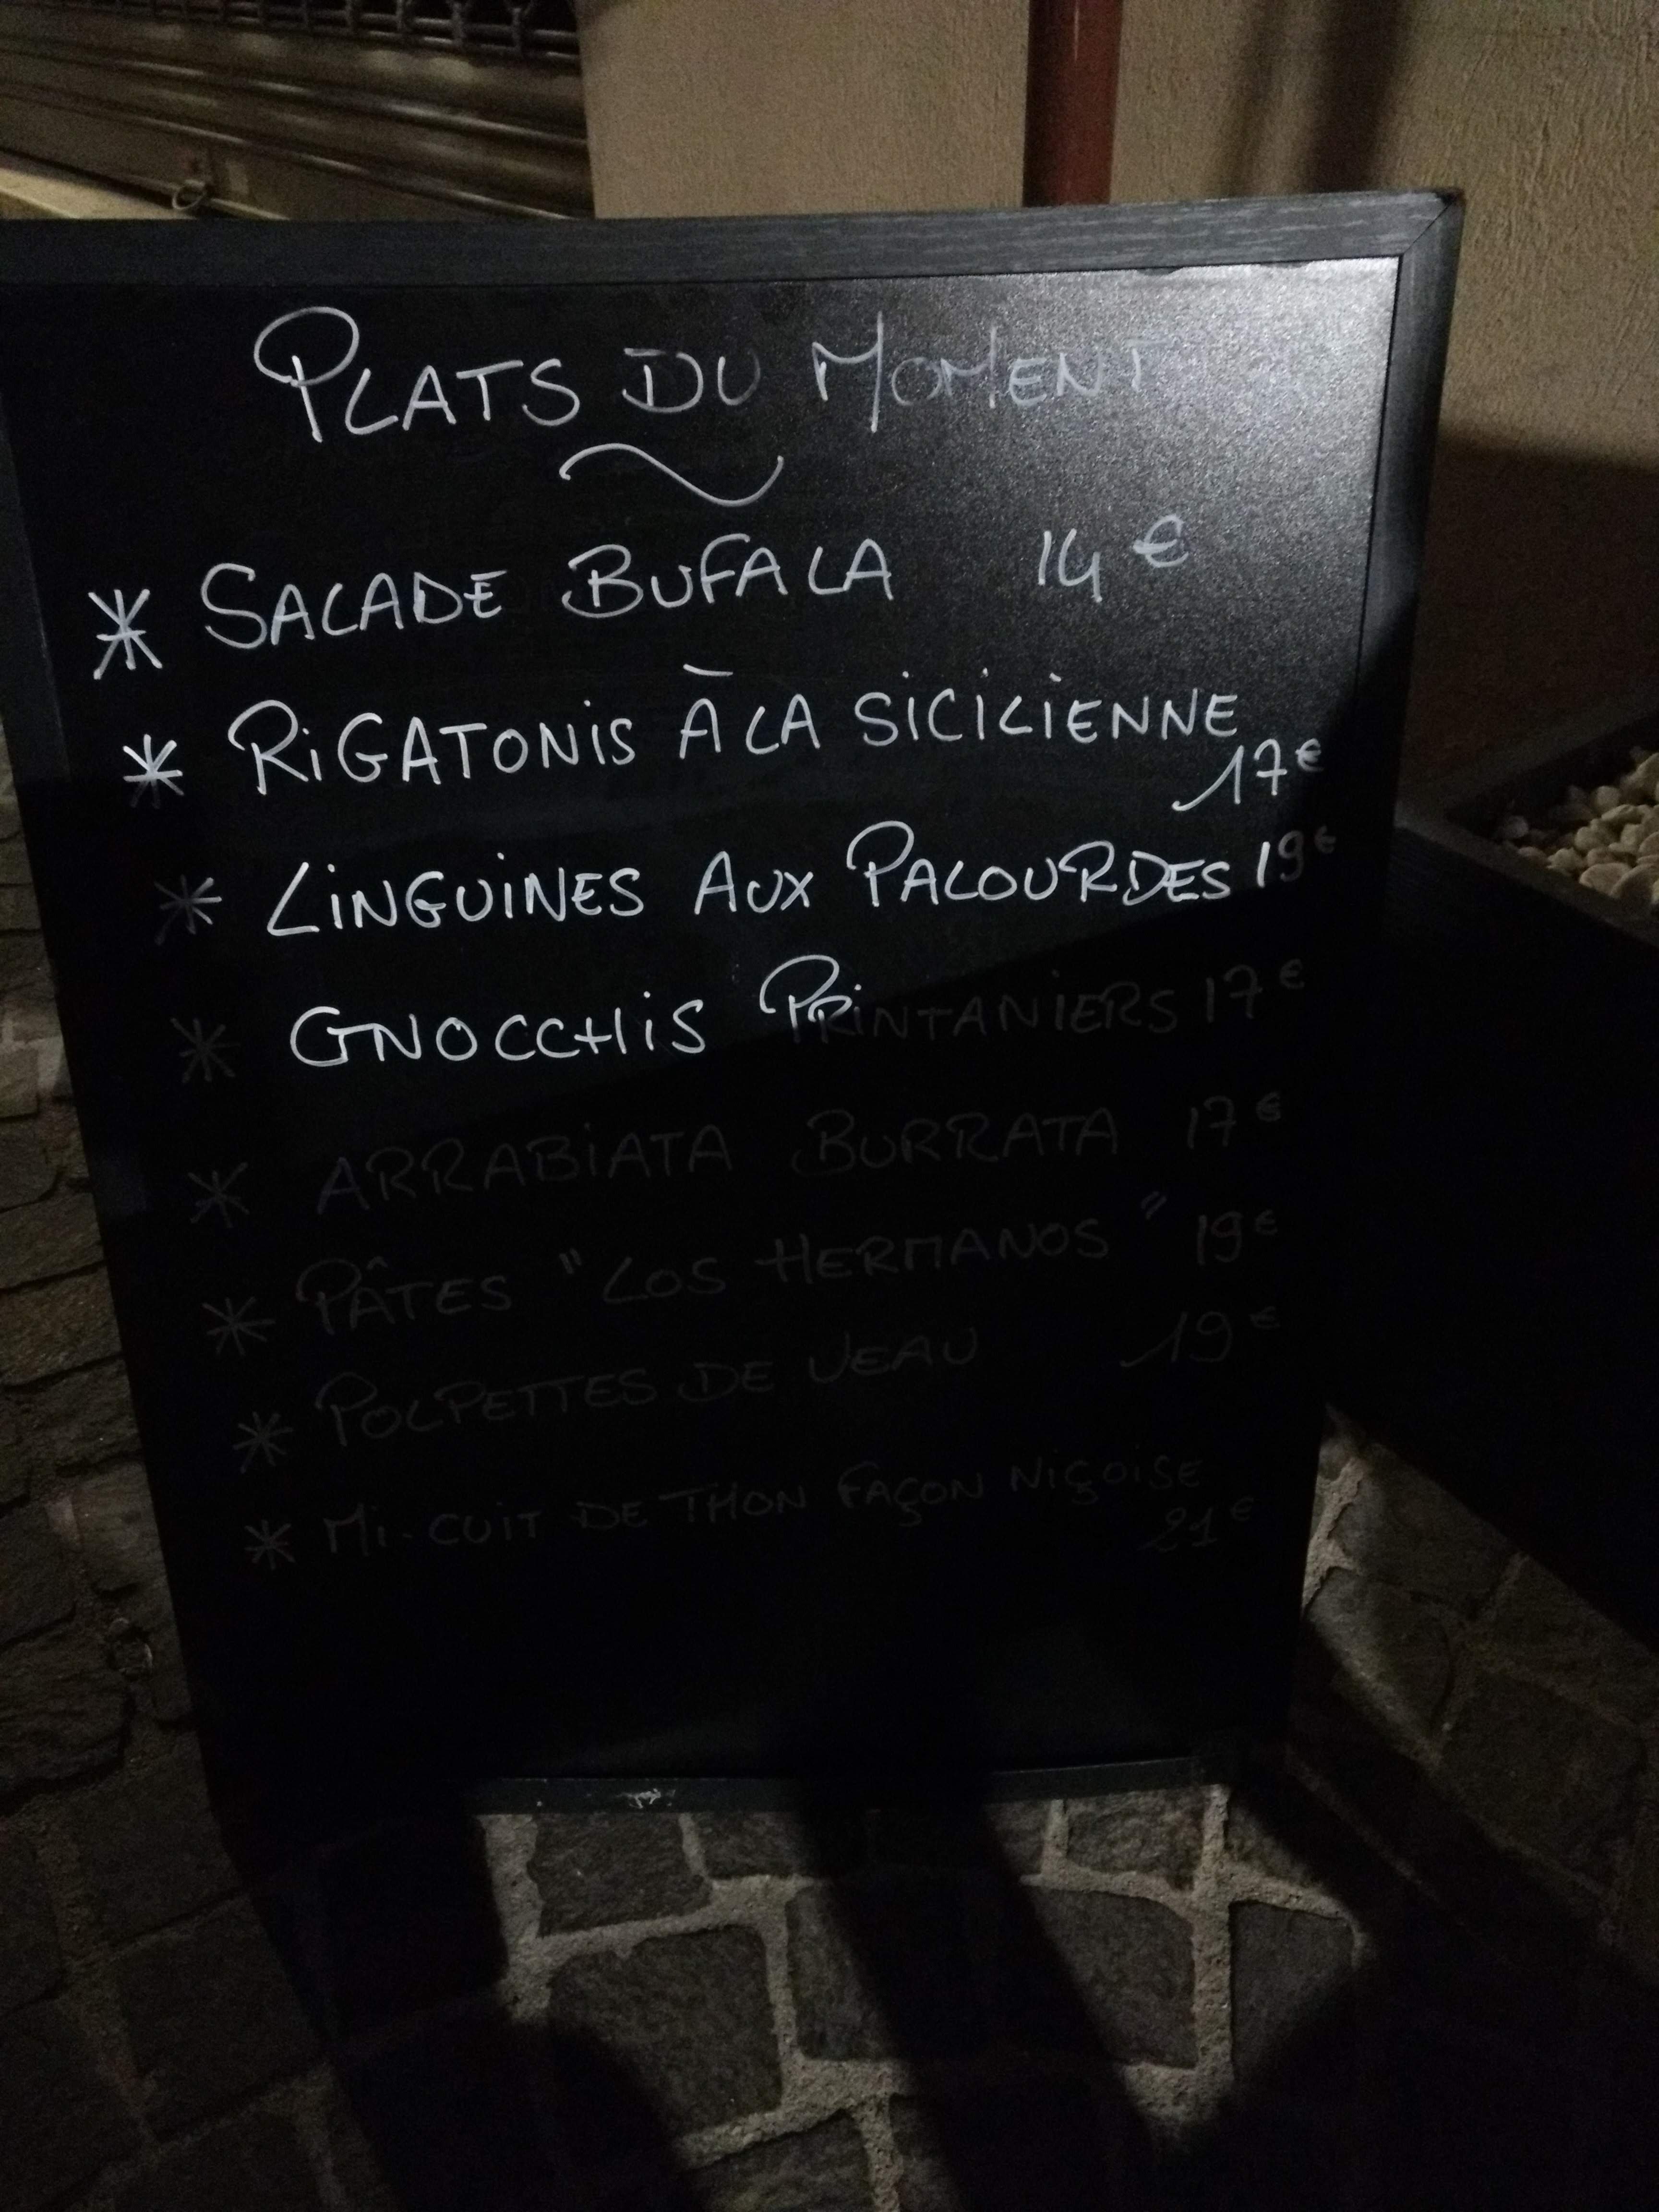 PLATS DU MOMENT
* SALADE BUFALA 14 €
* RIGATONIS À LA SICILIENNE
17€
* LINGUINES AUX PALOURDES 19€
* GNOCCHIS PRINTANIERS 17€
* ARRABIATA BURRATA 17€
* PÂTES "LOS HERMANOS" 19€
* POLPETTES DE VEAU 19€
* MI-CUIT DE THON FAÇON NIÇOISE
21€